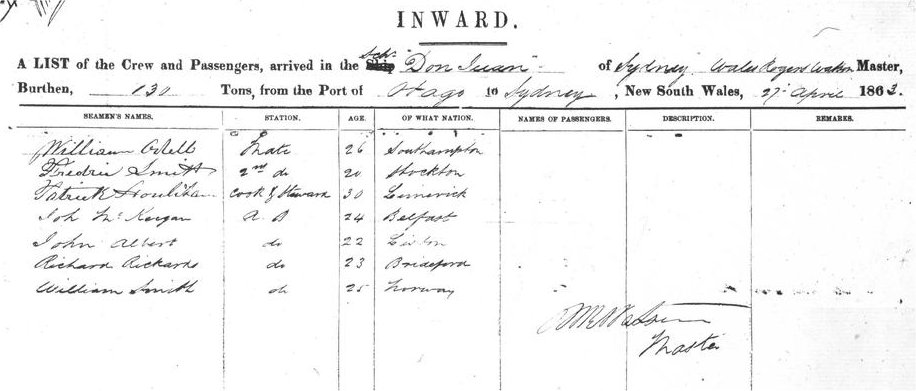 INWARD.
A LIST of the Crew and Passengers, arrived in the Schr "Don Juan" of Sydney Rogers Watson Master,
Burthen, 130 Tons, from the Port of Otago to Sydney, New South Wales, 27 April 1863.
SEAMEN'S NAMES. STATION. AGE. OF WHAT NATION. NAMES OF PASSENGERS. DESCRIPTION. REMARKS.
William Odell Mate 26 Southampton
Fredric Smith 2nd do 20 Stockton
Patrick Houlihan Cook & Steward 30 Limerick
Joh McKeegan A B 24 Belfast
John Albert do 22 Lisbon
Richard Rickards do 23 Brideford
William Smith do 25 Norway
Watson
Master